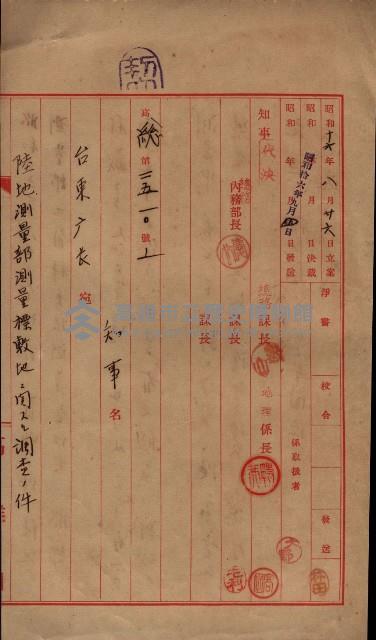 昭和十六年八月廿六日立案
昭和　年　月　日決裁
昭和　年　月　日發送
昭和拾六年九月四日
淨書
校合
發送
係取扱者
知事
代決
內務部長
總務課長
地理係長
課長
課長
高總第二五一〇號ノ上
知事名
台東廳長宛
陸地測量部測量標敷地ニ関スル調査ノ件
高雄市立歷史博物館